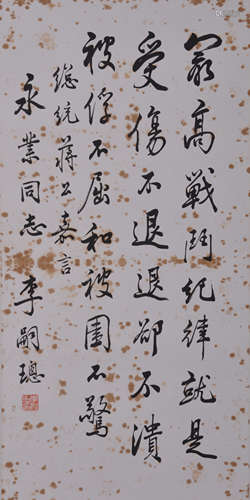 最高戰鬥紀律就是
受傷不退退卻不潰
被俘不屈和被圍不驚
總統蔣公嘉言
永業同志 李嗣璁